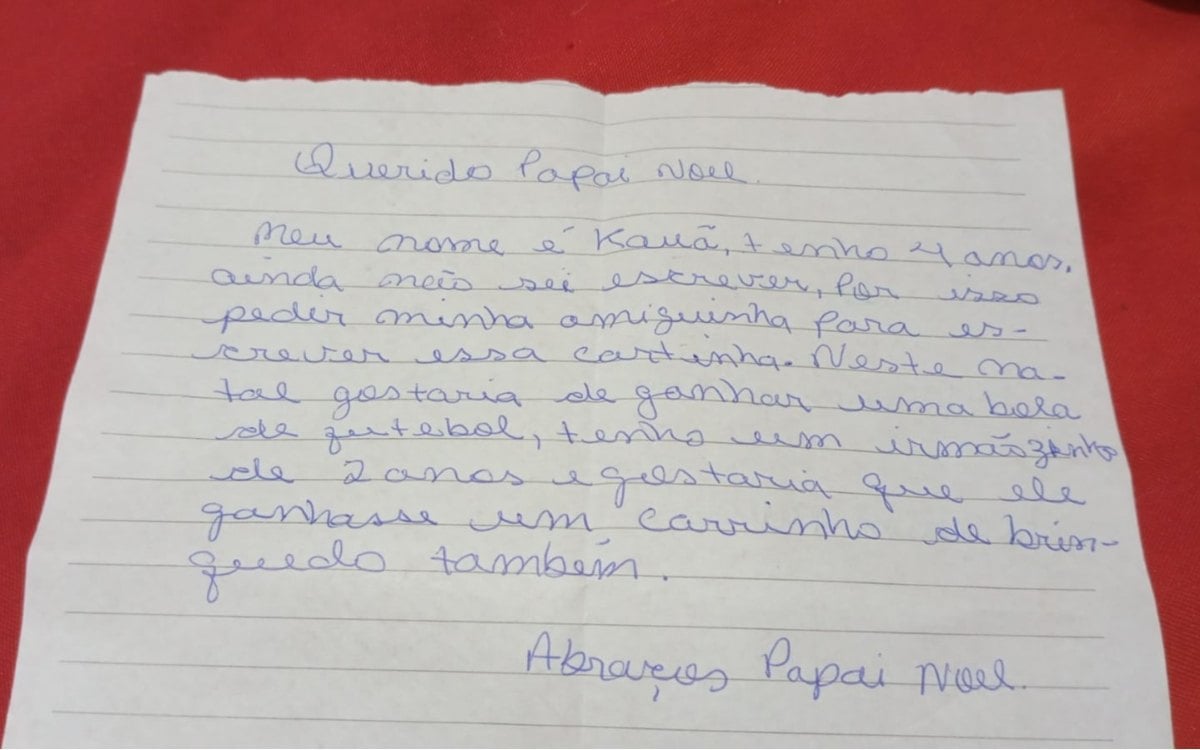 Querido Papai Noel.
Meu nome é Kauã, tenho 4 anos,
ainda não sei escrever, por isso
pedir minha amiguinha para es-
crever essa cartinha. Neste na-
tal gostaria de ganhar uma bola
de futebol, tenho um irmãozinho
de 2 anos e gostaria que ele
ganhasse um carrinho de brin-
quedo também.
Abraços Papai Noel.